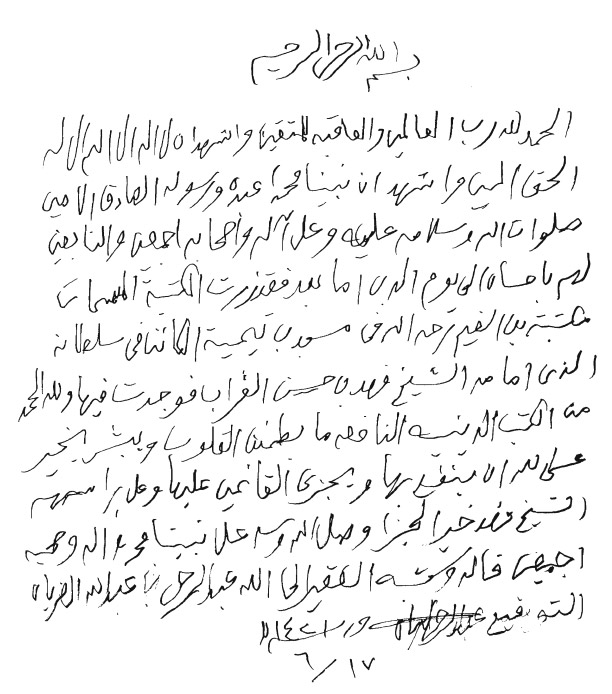 بسم الله الرحمن الرحيم
الحمد لله رب العالمين والعاقبة للمتقين واشهد ان لا اله الا الله الاله
الحق المبين واشهد ان نبينا محمدا عبده ورسوله الصادق الامين
صلوات الله وسلامه عليه وعلى آله وأصحابه اجمعين والتابعين
لهم باحسان الى يوم الدين اما بعد فقد زرت المكتبة المسماة
مكتبة بن القيم رحمه الله في مسجد بن تيمية الكائن في سلطانه
الذي امامه الشيخ فهد بن حسن الغراب فوجدت فيها ولله الحمد
من الكتب الدينيه النافعه ما يطمئن القلوب ويبشر بخير
عسى الله ان ينفع بها ويجزى القائمين عليها وعلى راسهم
الشيخ فهد خير الجزا وصلى الله وسلم على نبينا محمد واله وصحبه
اجمعين قاله وكتبه الفقير الى الله عبدالرحمن بن عبدالله
التوقيع ١٤٢١
٦/١٧